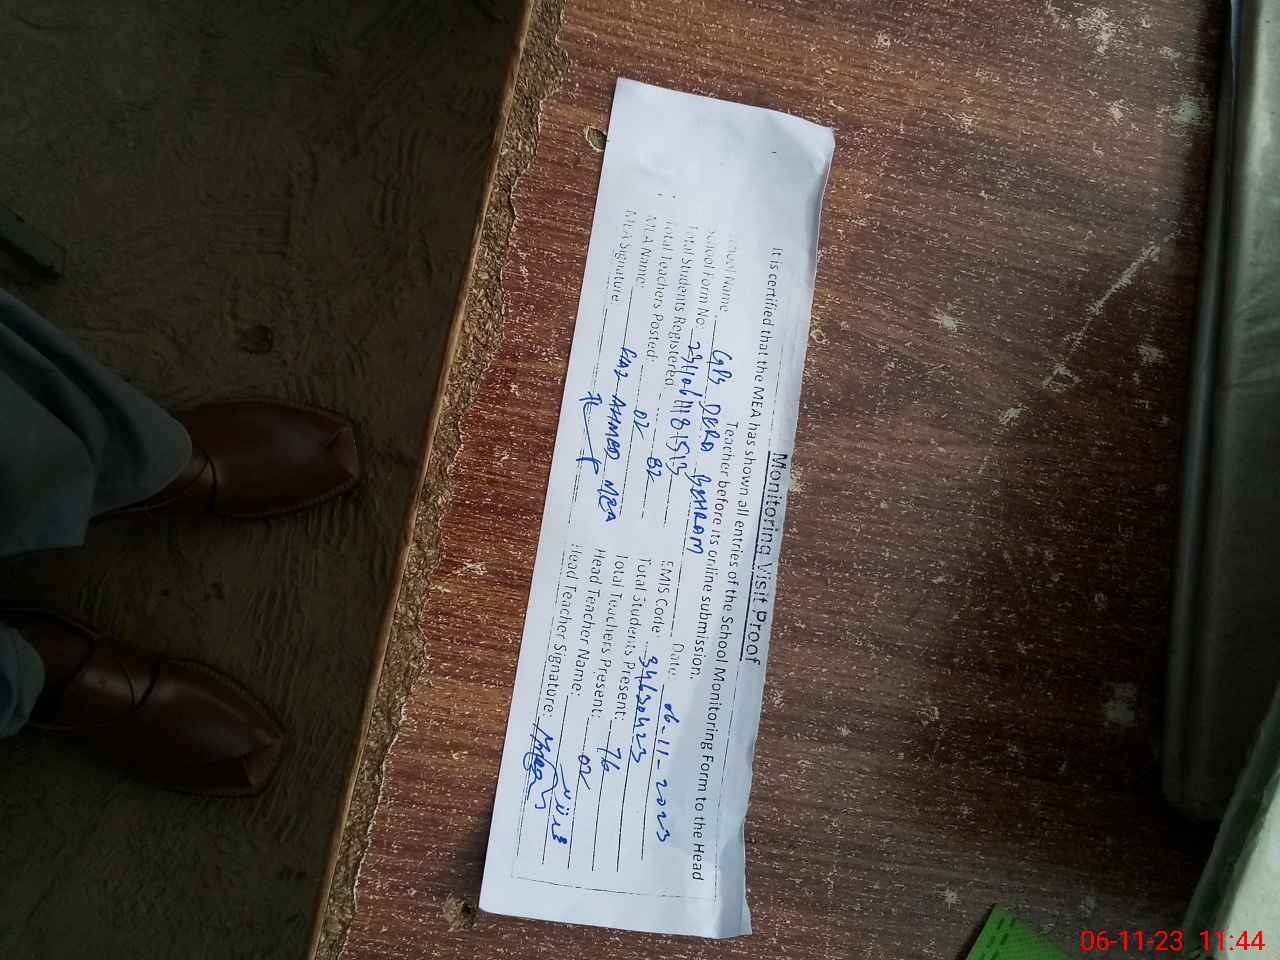 Monitoring Visit Proof
It is certified that the MEA has shown all entries of the School Monitoring Form to the Head
Teacher before its online submission.
School Name GPS DERA BEHRAM Date: 06-11-2023
School Form No: EMIS Code:
Total Students Registered 82 Total Students Present: 76
Total Teachers Posted: 02 Total Teachers Present: 02
MEA Name: AHMED MEA Head Teacher Name:
MEA Signature: Head Teacher Signature:
06-11-23 11:44